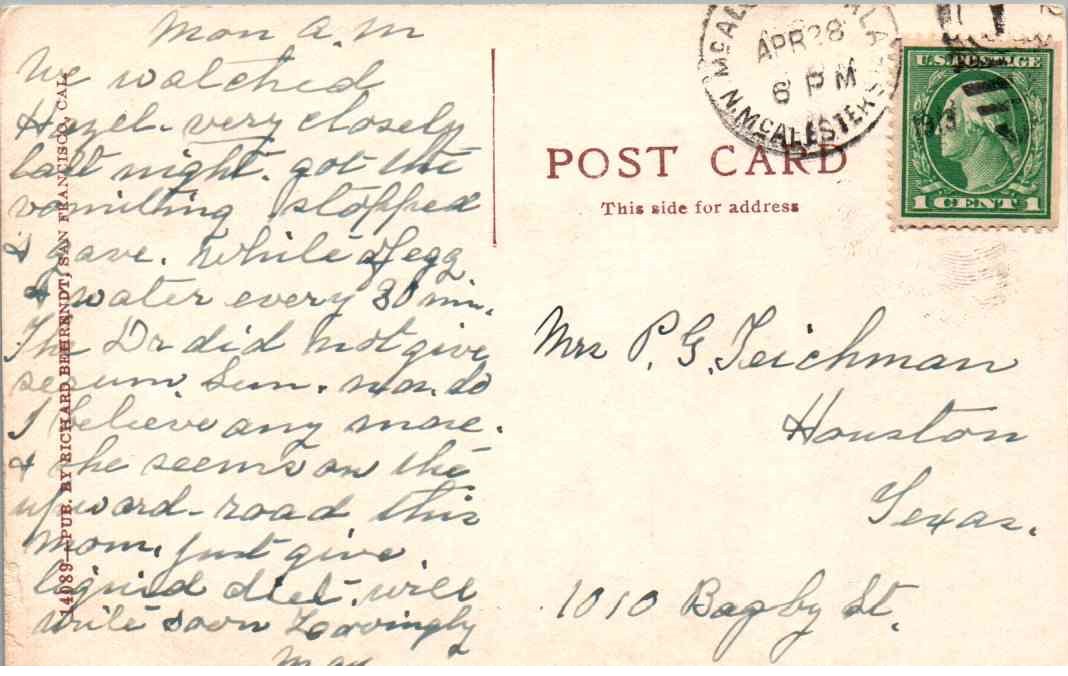 Mon a.m
We watched
Hazel. very closely
last night. got the
vomitting stopped
& gave. white of egg
& water every 30 min.
The Dr did not give
serum Sun. nor. do
I believe any more.
& she seems on the
upward-road this
morn. just give
liquid diet. will
write soon Lovingly
May
14089—PUB. BY RICHARD BEHRENDT, SAN FRANCISCO, CAL.
POST CARD
This side for address
APR 28
6 PM
1913
N. MCALESTER
U.S. POSTAGE
1 CENT 1
Mrs P. G. Teichman
Houston
Texas.
1010 Bagby St.